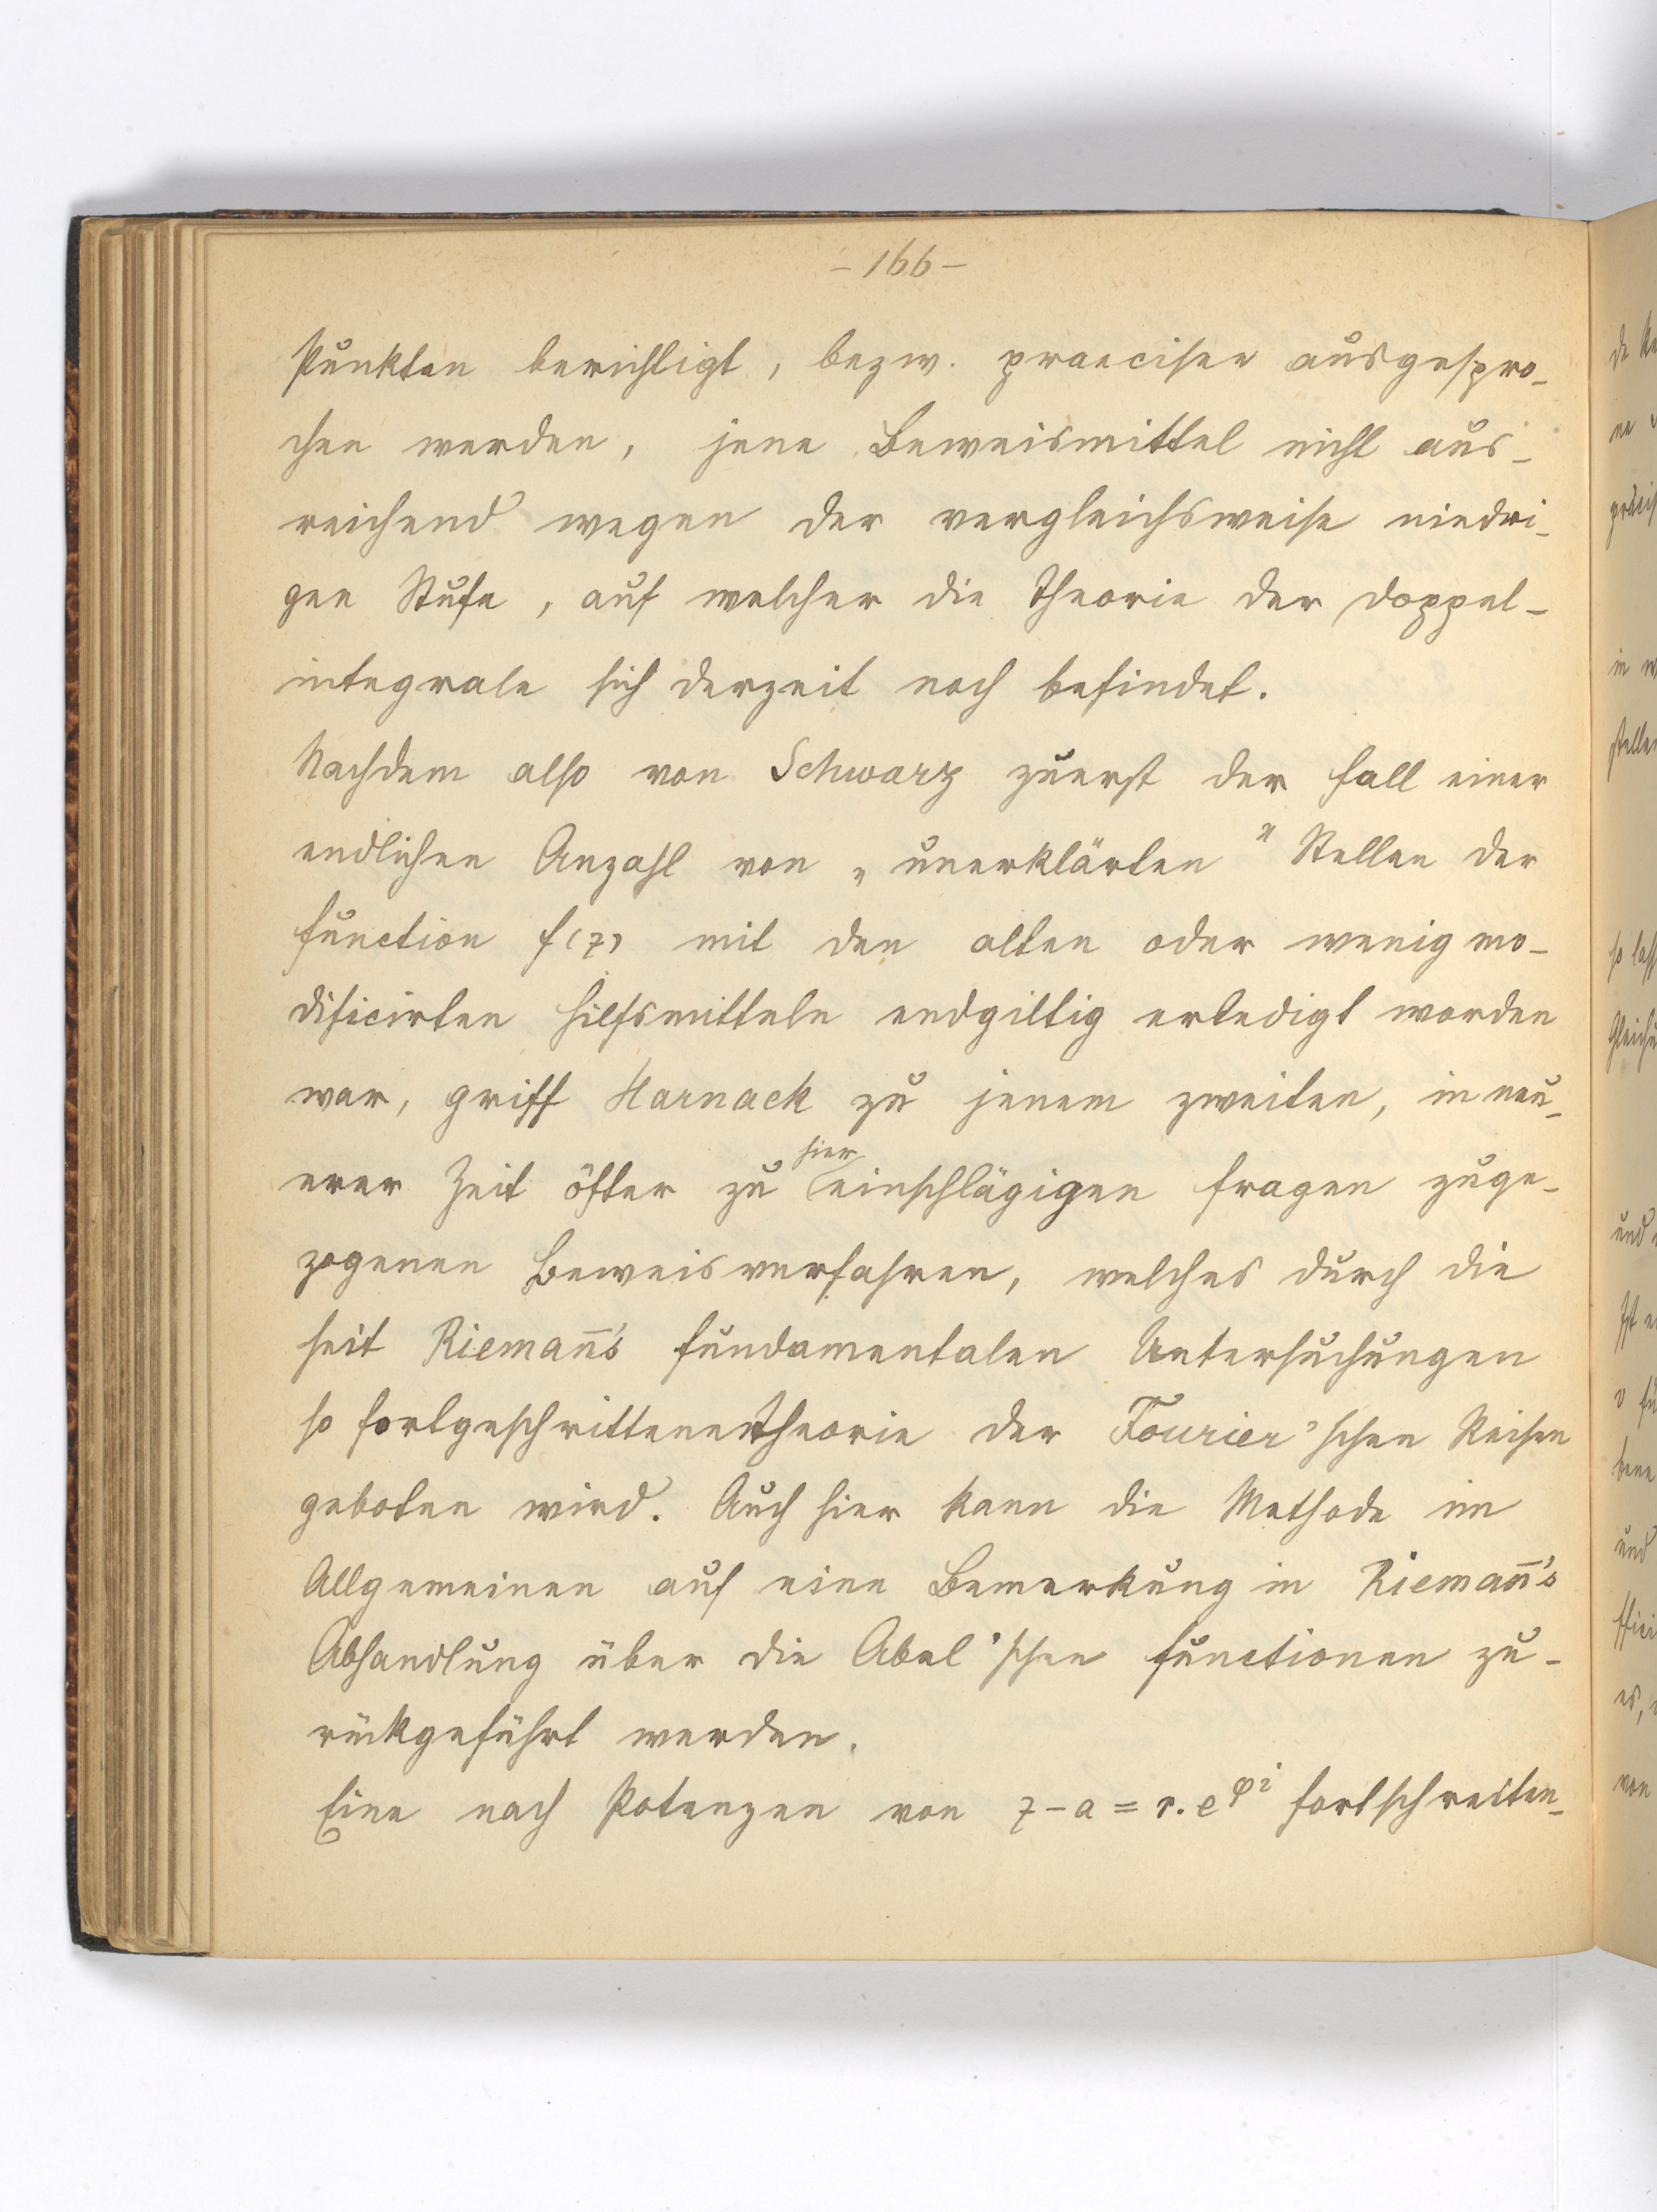 – 166 –
Punkten berichtigt, bezw. praeciser ausgespro-
chen werden, jene Beweismittel nicht aus-
reichend wegen der vergleichsweise niedri-
gen Stufe, auf welcher die Theorie der Doppel-
integrale sich derzeit noch befindet.
Nachdem also von Schwarz zuerst der Fall einer
endlichen Anzahl von „unerklärten" Stellen der
Function f(z) mit den alten oder wenig mo-
dificirten Hilfsmitteln endgiltig erledigt worden
war, griff Harnack zu jenem zweiten, in neu-
hier
erer Zeit öfter zu einschlägigen Fragen zuge-
zogenen Beweisverfahren, welches durch die
seit Rieman̄'s fundamentalen Untersuchungen
so fortgeschrittene Theorie der Fourier'schen Reihen
geboten wird. Auch hier kann die Methode im
Allgemeinen auf eine Bemerkung in Rieman̄'s
Abhandlung über die Abel'schen Functionen zu-
rückgeführt werden.
Eine nach Potenzen von z - a = r.e^{φi} fortschreiten-